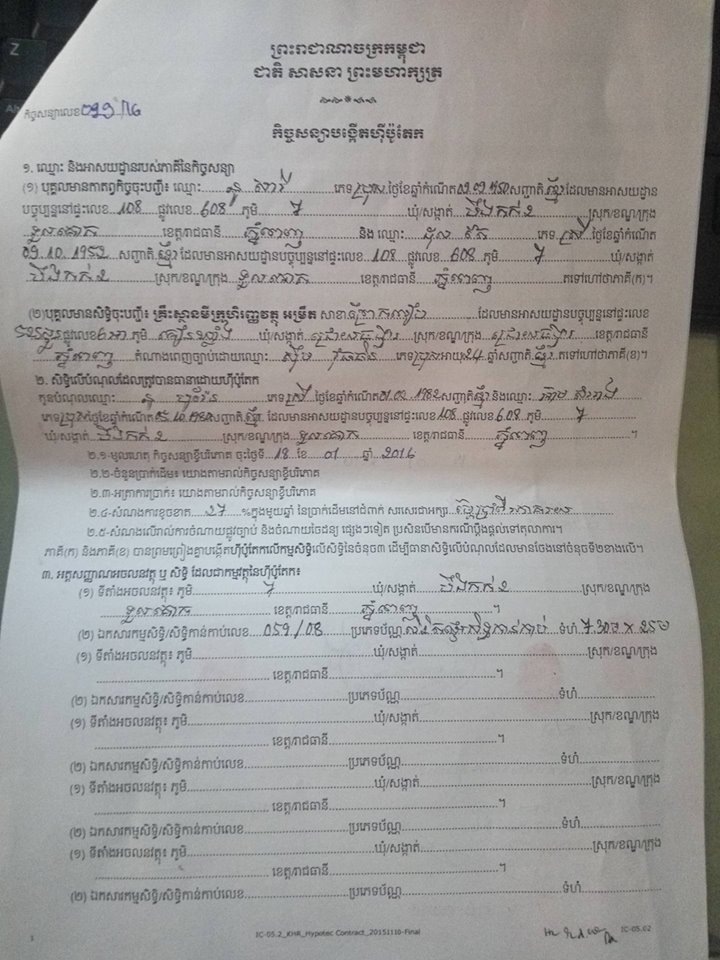 ព្រះរាជាណាចក្រកម្ពុជា
ជាតិ សាសនា ព្រះមហាក្សត្រ
កិច្ចសន្យាលេខ 099/16
កិច្ចសន្យាបង្កើតហ៊ីប៉ូតែក
១. ឈ្មោះ និងអាសយដ្ឋានរបស់ភាគីនៃកិច្ចសន្យា
(១) បុគ្គលមានកាតព្វកិច្ចចុះបញ្ជី៖ ឈ្មោះ ភេទ ប្រុស ថ្ងៃខែឆ្នាំកំណើត សញ្ជាតិ ខ្មែរ ដែលមានអាសយដ្ឋាន
បច្ចុប្បន្ននៅផ្ទះលេខ 108 ផ្លូវលេខ 608 ភូមិ 7 ឃុំ/សង្កាត់ បឹងកក់ ២ ស្រុក/ខណ្ឌ/ក្រុង
ទួលគោក ខេត្ត/រាជធានី ភ្នំពេញ និង ឈ្មោះ ភេទ ស្រី ថ្ងៃខែឆ្នាំកំណើត
09.10.1952 សញ្ជាតិ ខ្មែរ ដែលមានអាសយដ្ឋានបច្ចុប្បន្ននៅផ្ទះលេខ 108 ផ្លូវលេខ 608 ភូមិ 7 ឃុំ/សង្កាត់
បឹងកក់ ២ ស្រុក/ខណ្ឌ/ក្រុង ទួលគោក ខេត្ត/រាជធានី ភ្នំពេញ តទៅហៅថាភាគី(ក)។
(២) បុគ្គលមានសិទ្ធិចុះបញ្ជី៖ គ្រឹះស្ថានមីក្រូហិរញ្ញវត្ថុ អម្រឹត សាខា ដែលមានអាសយដ្ឋានបច្ចុប្បន្ននៅផ្ទះលេខ
ផ្លូវលេខ ភូមិ ឃុំ/សង្កាត់ ជ្រោយចង្វារ ស្រុក/ខណ្ឌ/ក្រុង ជ្រោយចង្វារ ខេត្ត/រាជធានី
ភ្នំពេញ តំណាងពេញច្បាប់ដោយឈ្មោះ ភេទ ប្រុស អាយុ 24 ឆ្នាំ សញ្ជាតិ ខ្មែរ តទៅហៅថាភាគី(ខ)។
២. សិទ្ធិលើបំណុលដែលត្រូវបានធានាដោយហ៊ីប៉ូតែក
កូនបំណុលឈ្មោះ ភេទ ស្រី ថ្ងៃខែឆ្នាំកំណើត សញ្ជាតិ ខ្មែរ និងឈ្មោះ
ភេទ ប្រុស ថ្ងៃខែឆ្នាំកំណើត សញ្ជាតិ ខ្មែរ ដែលមានអាសយដ្ឋានបច្ចុប្បន្ននៅផ្ទះលេខ 108 ផ្លូវលេខ 608 ភូមិ 7
ឃុំ/សង្កាត់ បឹងកក់ ២ ស្រុក/ខណ្ឌ/ក្រុង ទួលគោក ខេត្ត/រាជធានី ភ្នំពេញ ។
២.១-មូលហេតុ កិច្ចសន្យាខ្ចីបរិភោគ ចុះថ្ងៃទី 18 ខែ 01 ឆ្នាំ 2016
២.២-ចំនួនប្រាក់ដើម៖ យោងតាមរាល់កិច្ចសន្យាខ្ចីបរិភោគ
២.៣-អត្រាការប្រាក់៖ យោងតាមរាល់កិច្ចសន្យាខ្ចីបរិភោគ
២.៤-សំណងការខូចខាត 27 %ក្នុងមួយឆ្នាំ នៃប្រាក់ដើមនៅជំពាក់ សរសេរជាអក្សរ ម្ភៃប្រាំពីរភាគរយ
២.៥-សំណងលើរាល់ការចំណាយផ្លូវច្បាប់ និងចំណាយចៃដន្យ ផ្សេងៗទៀត ប្រសិនបើមានករណីប្តឹងផ្តល់ទៅតុលាការ។
ភាគី(ក) និងភាគី(ខ) បានព្រមព្រៀងគ្នាបង្កើតហ៊ីប៉ូតែកលើកម្មសិទ្ធិលើសិទ្ធិនៃចំនុច៣ ដើម្បីធានាសិទ្ធិលើបំណុលដែលមានចែងនៅចំនុចទី២ខាងលើ។
៣. អត្តសញ្ញាណអចលនវត្ថុ ឬ សិទ្ធិ ដែលជាកម្មវត្ថុនៃហ៊ីប៉ូតែក៖
(១) ទីតាំងអចលនវត្ថុ៖ ភូមិ 7 ឃុំ/សង្កាត់ បឹងកក់ ២ ស្រុក/ខណ្ឌ/ក្រុង
ទួលគោក ខេត្ត/រាជធានី ភ្នំពេញ ។
(២) ឯកសារកម្មសិទ្ធិ/សិទ្ធិកាន់កាប់លេខ 059/08 ប្រភេទប័ណ្ណ ទំហំ
(១) ទីតាំងអចលនវត្ថុ៖ ភូមិ ឃុំ/សង្កាត់ ស្រុក/ខណ្ឌ/ក្រុង
ខេត្ត/រាជធានី ។
(២) ឯកសារកម្មសិទ្ធិ/សិទ្ធិកាន់កាប់លេខ ប្រភេទប័ណ្ណ ទំហំ
(១) ទីតាំងអចលនវត្ថុ៖ ភូមិ ឃុំ/សង្កាត់ ស្រុក/ខណ្ឌ/ក្រុង
ខេត្ត/រាជធានី ។
(២) ឯកសារកម្មសិទ្ធិ/សិទ្ធិកាន់កាប់លេខ ប្រភេទប័ណ្ណ ទំហំ
(១) ទីតាំងអចលនវត្ថុ៖ ភូមិ ឃុំ/សង្កាត់ ស្រុក/ខណ្ឌ/ក្រុង
ខេត្ត/រាជធានី ។
(២) ឯកសារកម្មសិទ្ធិ/សិទ្ធិកាន់កាប់លេខ ប្រភេទប័ណ្ណ ទំហំ
(១) ទីតាំងអចលនវត្ថុ៖ ភូមិ ឃុំ/សង្កាត់ ស្រុក/ខណ្ឌ/ក្រុង
ខេត្ត/រាជធានី ។
(២) ឯកសារកម្មសិទ្ធិ/សិទ្ធិកាន់កាប់លេខ ប្រភេទប័ណ្ណ ទំហំ
1 IC-05.2_KHR_Hypotec Contract_20151110-Final IC-05.02